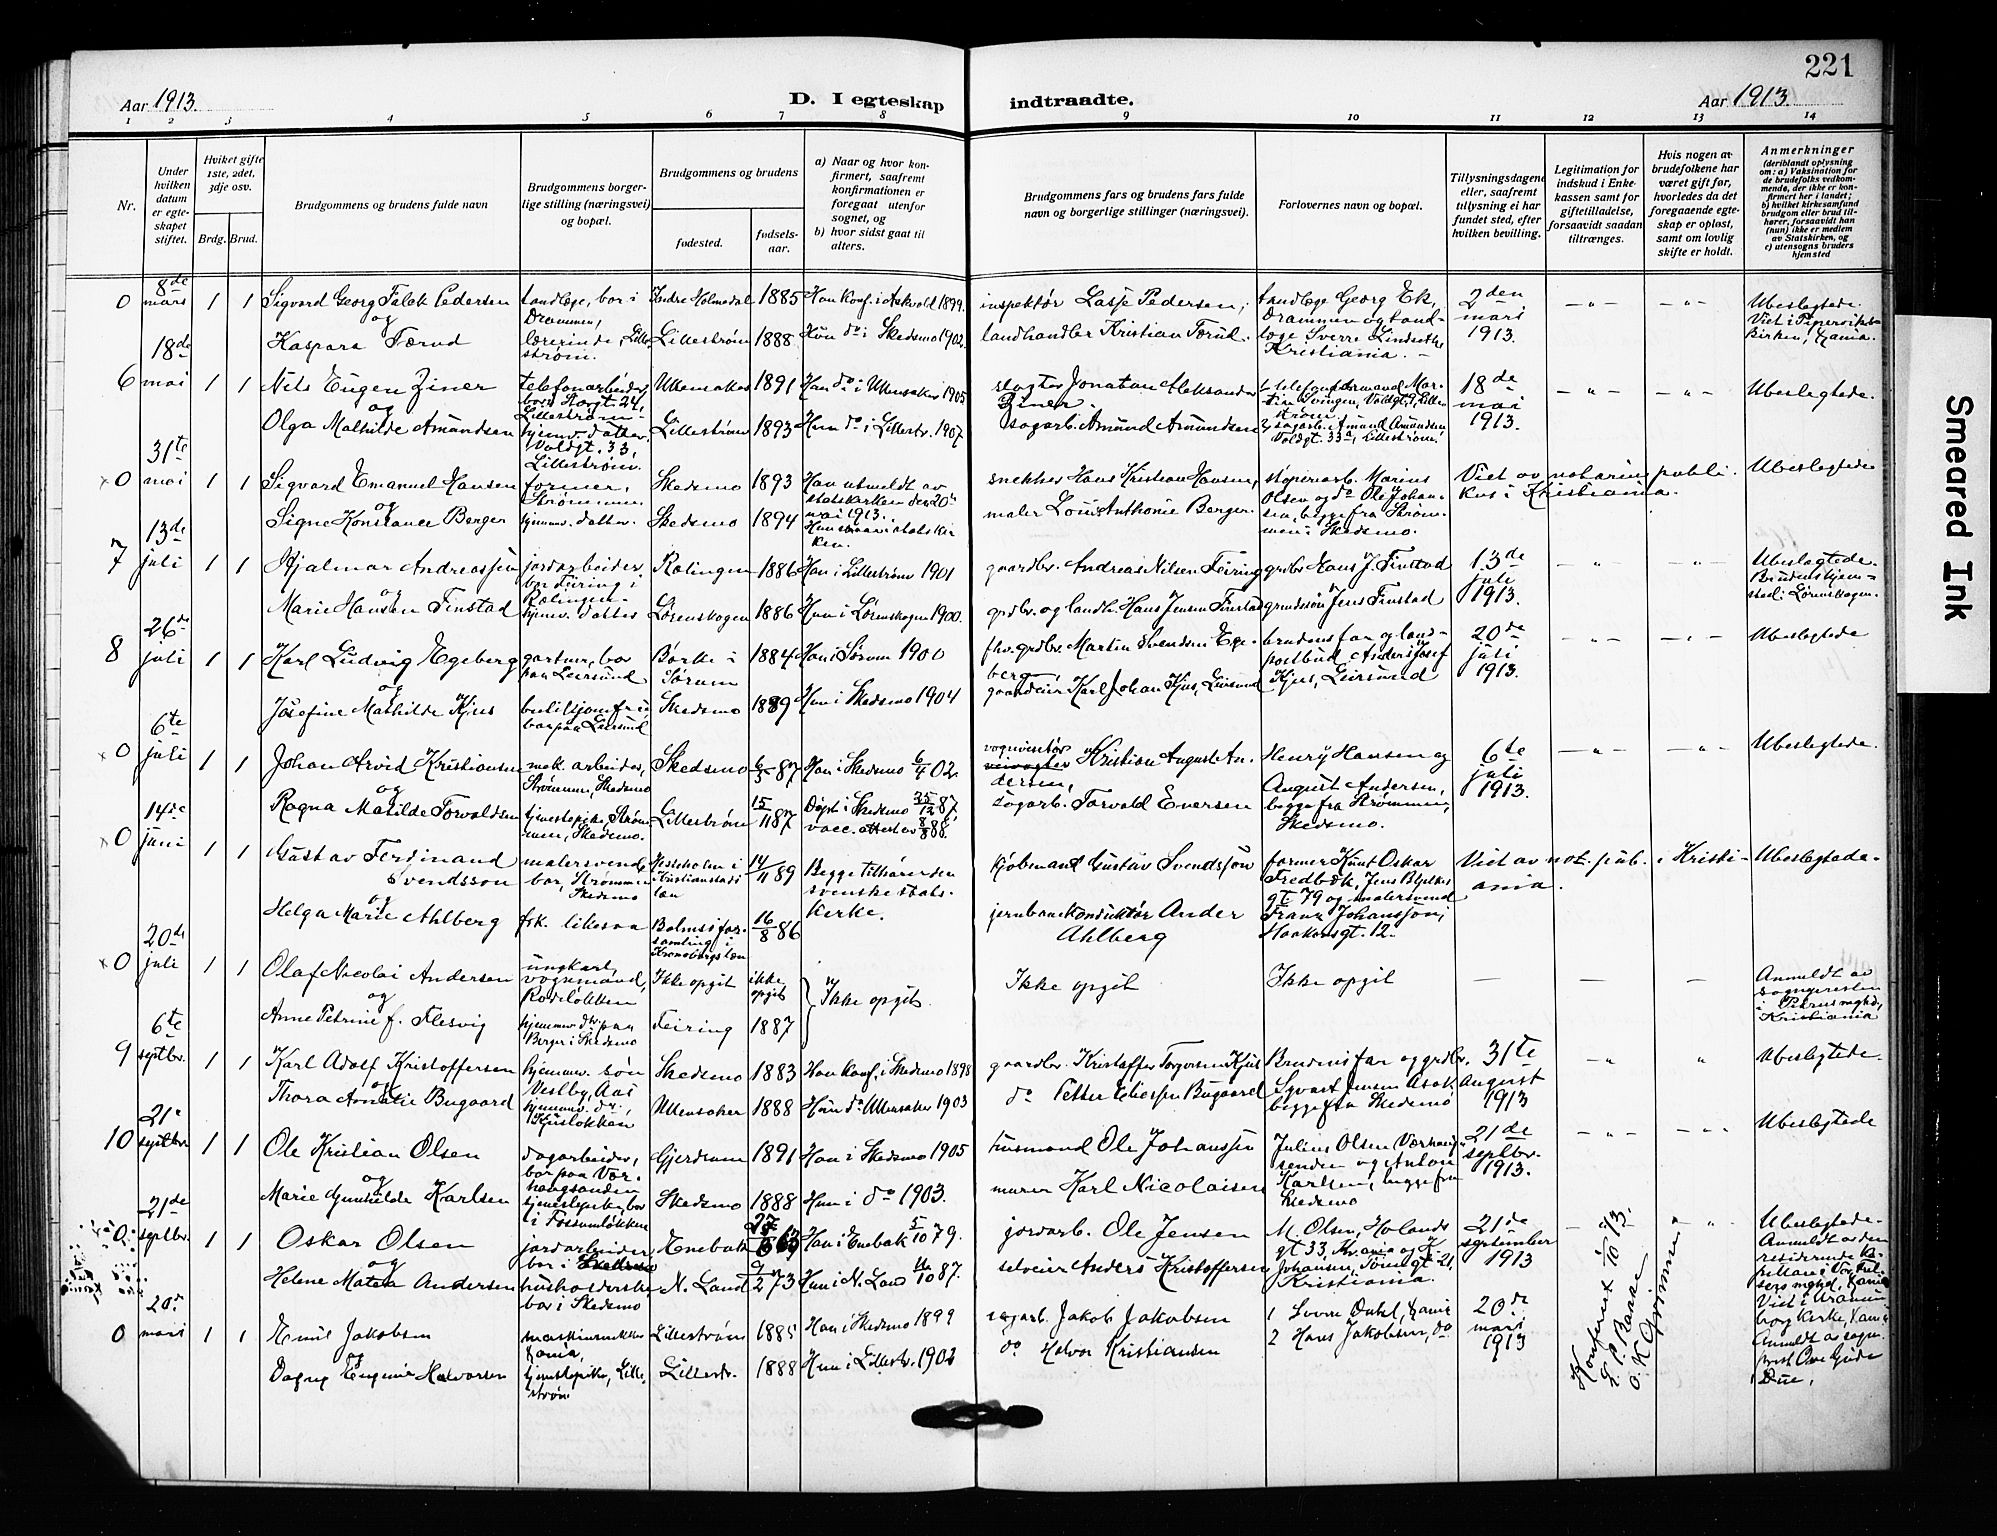 221
Aar 1913.
D. I egteskap indtraadte.
Aar 1913.
1 2 3 4 5 6 7 8 9 10 11 12 13 14
Nr.
Under hvilken datum er egteskapet stiftet.
Hvilket gifte 1ste, 2det, 3dje osv.
Brdg. Brud.
Brudgommens og brudens fulde navn
Brudgommens borgerlige stilling (næringsvei) og bopæl.
Brudgommens og brudens
fødested.
fødselsaar.
a) Naar og hvor konfirmert, saafremt konfirmationen er foregaat utenfor sognet, og
b) hvor sidst gaat til alters.
Brudgommens fars og brudens fars fulde navn og borgerlige stillinger (næringsvei).
Forlovernes navn og bopæl.
Tillysningsdagene eller, saafremt tillysning ei har fundet sted, efter hvilken bevilling.
Legitimation for indskud i Enkekassen samt for giftetilladelse, forsaavidt saadan tiltrænges.
Hvis nogen av brudefolkene har været gift før, hvorledes da det foregaaende egteskap er opløst, samt om lovlig skifte er holdt.
Anmerkninger
(deriblandt oplysning om: a) Vaksination for de brudefolks vedkommende, der ikke er konfirmert her i landet; b) hvilket kirkesamfund brudgom eller brud tilhører, forsaavidt han (hun) ikke er medlem av Statskirken, og c) utensogns bruders hjemsted
0 8de mars 1 1 Sigvard Georg Falck Pedersen tandlæge, bor i Drammen, Indre Holmedal 1885 Han konf. i Askvold 1899. inspektør Lasse Pedersen, tandlæge Georg Ek, Drammen og tandlæge Sverre Kristiania. 2den mars 1913. Ubeslegtede. Viet i Pipervikskirken, Kr.ania.
og Kaspara Tærud lærerinde, Lillestrøm. Lillestrøm 1888 Hun do i Skedsmo 1902. landhandler Kristian Tærud.
6 18de mai 1 1 Nils Eugen Ziner telefonarbeider, bor Storgt. 24, Lillestrøm. Ullensaker 1891 Han do i Ullensaker 1905 Jonatan Aleksander Ziner. 18de mai 1913. Ubeslegtede.
og Olga Mathilde Amundsen hjemv. datter, Voldgt. 33, Lillestrøm. Lillestrøm 1893 Hun do i Lillestr. 1907. sagarb. Amund Amundsen sagarb. Amund Amundsen Voldgt. 33a, Lillestrøm.
0 31te mai 1 1 Sigvard Emanuel Hansen former, Strømmen. Skedsmo 1893 Han utmeldt av statskirken den 20de mai 1913. snekker Hans Kristian Hansen, støperiarb. Marius Olsen og do Ole Johansen, begge fra Strømmen i Skedsmo. Viet av notarius publikus i Kristiania. Ubeslegtede
og Signe Konstance Berger hjemv. datter. Skedsmo 1894 Hun staar i statskirken. maler Louis Anthonie Berger.
7 13de juli 1 1 Hjalmar Andreassen jordarbeider, bor Feiring i Rælingen. Rælingen 1886 Han i Lillestrøm 1901 gaardbr. Andreas Nilsen Feiring grdbr. Hans J. Finstad 13de juli 1913. Ubeslegtede. Brudens hjemsted: Lørenskogen.
og Marie Hansen Finstad hjemv. datter Lørenskogen 1886 Hun i Lørenskogen 1900. grdbr. og landh. Hans Jensen Finstad grdssøn Jens Finstad
8 26de juli 1 1 Karl Ludvig Egeberg gartner, bor paa Leirsund Børke i Sørum 1884 Han i Sørum 1900 fhv. grdbr. Martin Svendsen Egeberg, brudens far og landpostbud Anders Josef Kjus, Leirsund 20de juli 1913. Ubeslegtede
og Josefine Mathilde Kjus butikjomfru bor paa Leirsund Skedsmo 1889 Hun i Skedsmo 1904 gaardeier Karl Johan Kjus, Leirsund
0 6te juli 1 1 Johan Arvid Kristiansen mek. arbeider, Strømmen, Skedsmo Skedsmo 6/3 87 Han i Skedsmo 6/4 02. vognvisitør Kristian August Andersen, Henry Hansen og August Andersen, begge fra Strømmen, Skedsmo. 6te juli 1913. Ubeslegtede.
og Ragna Matilde Torvaldsen tjenestepike, Strømmen, Skedsmo. Lillestrøm 15/11 87 Døpt i Skedsmo 25/12 87, vacc. attest av 8/8 88. sagarb. Torvald Eversen
0 14de juni 1 1 Gustav Ferdinand Svendsson malersvend, bor, Strømmen Skedsmo Kristianstads län 14/11 89 Begge tilhører den svenske statskirke. kjøbmand Gustav Svendsson former Knut Oskar Fredbæk, Jens Bjelkes gt. 79 og malersvend Franz Johansson, Haakonsgt. 12. Viet av not. pub. i Kristiania. Ubeslegtede.
og Helga Marie Ahlberg frk. likesaa Bolmsøforsamling i Kronobergs län 16/8 86 jernbanekonduktør Ander Ahlberg
0 20de juli 1 1 Olaf Nicolai Andersen ungkarl, vognmand, Rodeløkken Ikke opgit ikke opgit Ikke opgit. Ikke opgit Ikke opgit Anmeldt av sognepresten i Petrus mghd, Kristiania
og Anne Petrine f. Flesvig hjemmev. dtr. paa Berger i Skedsmo Feiring 1887
9 6te septbr. 1 1 Karl Adolf Kristoffersen hjemmev. søn Vestby, Aas Skedsmo 1883 Han konf. i Skedsmo 1898 gaardbr. Kristoffer Torgersen Kjus Brudens far og grdbr. Syvart Jensen Asak begge fra Skedsmo 31te August 1913 Ubeslegtede.
og Thora Amalie Bugaard hjemmev. dtr., Kjusløkken Ullensaker 1888 Hun do Ullensaker 1903 do Petter Eliassen Bugaard
10 21de septbr. 1 1 Ole Kristian Olsen dagarbeider, bor paa Værhaugsanden Gjerdrum 1891 Han i Skedsmo 1905 husmand Ole Johanssen Julius Olsen Værhaugsenden og Anton Karlsen, begge fra Skedsmo 21de septbr. 1913. Ubeslegtede
og Marie Gunhilde Karlsen tjenestepike, bor i Fossumløkken Skedsmo 1888 Hun i do 1903. murer Karl Nicolaisen
0 21de septbr. 1 1 Oskar Olsen jordarbeider bor i Skedsmo Enebak Han i Enebak 5/10 79. jordarb. Ole Jensen M. Olsen, Holands gt 33, Kr.ania og K. Johansen, 21, Kristiania. 21de september 1913 Ubeslegtede. Anmeldt av den residerende kapellan i Vor Frelsers mghd, Kr.ania Viet i Uranienborg kirke, Kr.ania
og Helene Matea Andersen husholderske bor i Skedsmo N. Land 9/2 73 Hun i N. Land 10 87. selveier Anders Kristoffersen
0 20de mars 1 1 Emil Jakobsen Kr.ania, Lillestrøm 1885 Han i Skedsmo 1899 sagarb. Jakob Jakobsen 1 2 Hans Jakobsen, do 20de mars 1913 Anmeldt av sogneprest Ove Gude Due.
og Dagny Eugenie Halvorsen tjenestepike, Lillestrøm Lillestr. 1888 Hun i Lillestr. 1902 do Halvor Kristiansen
Konferert 13.
Smeared Ink